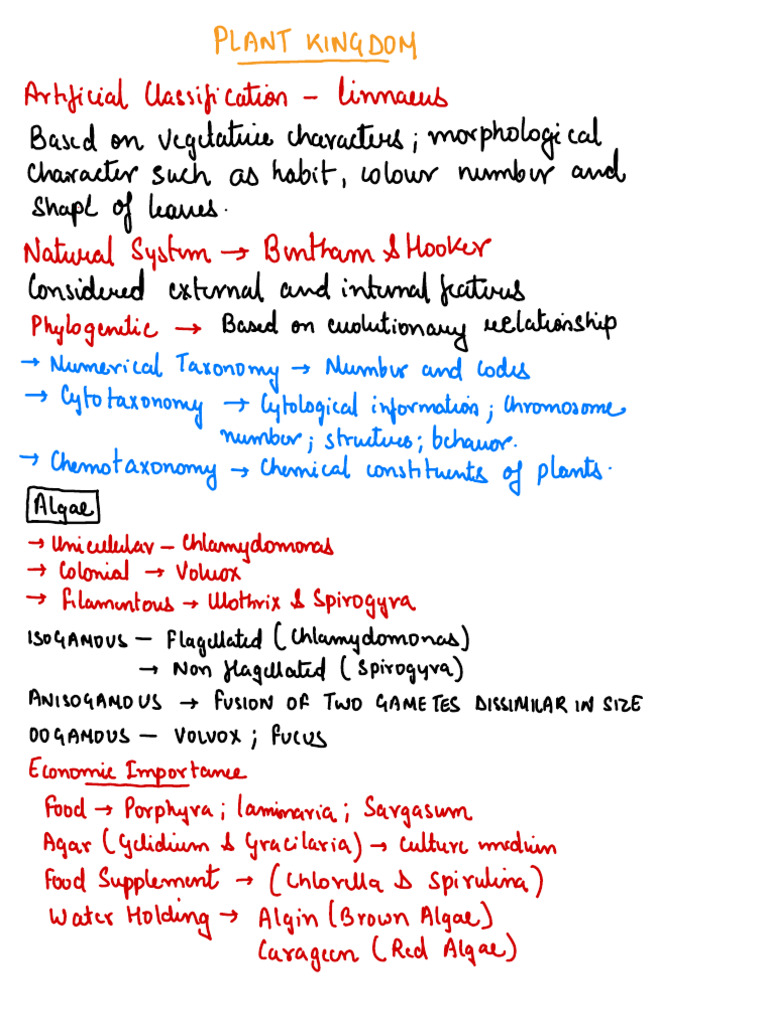 PLANT KINGDOM
Artificial Classification – Linnaeus
Based on vegetative characters; morphological
character such as habit, colour number and
shape of leaves.
Natural System → Bentham & Hooker
Considered external and internal features
Phylogenitic → Based on evolutionary relationship
→ Numerical Taxonomy → Number and codes
→ Cytotaxonomy → Cytological information; Chromosome
number; structures; behavior.
→ Chemotaxonomy → Chemical constituents of plants.
Algae
→ Unicellular – Chlamydomonas
→ Colonial → Volvox
→ Filamentous → Ulothrix & Spirogyra
ISOGAMOUS – Flagellated (Chlamydomonas)
→ Non flagellated (Spirogyra)
ANISOGAMOUS → FUSION OF TWO GAMETES DISSIMILAR IN SIZE
OOGAMOUS – VOLVOX; FUCUS
Economic Importance
Food → Porphyra; laminaria; Sargasum
Agar (Gelidium & Gracilaria) → culture medium
Food Supplement → (Chlorella & Spirulina)
Water Holding → Algin (Brown Algae)
Carageen (Red Algae)